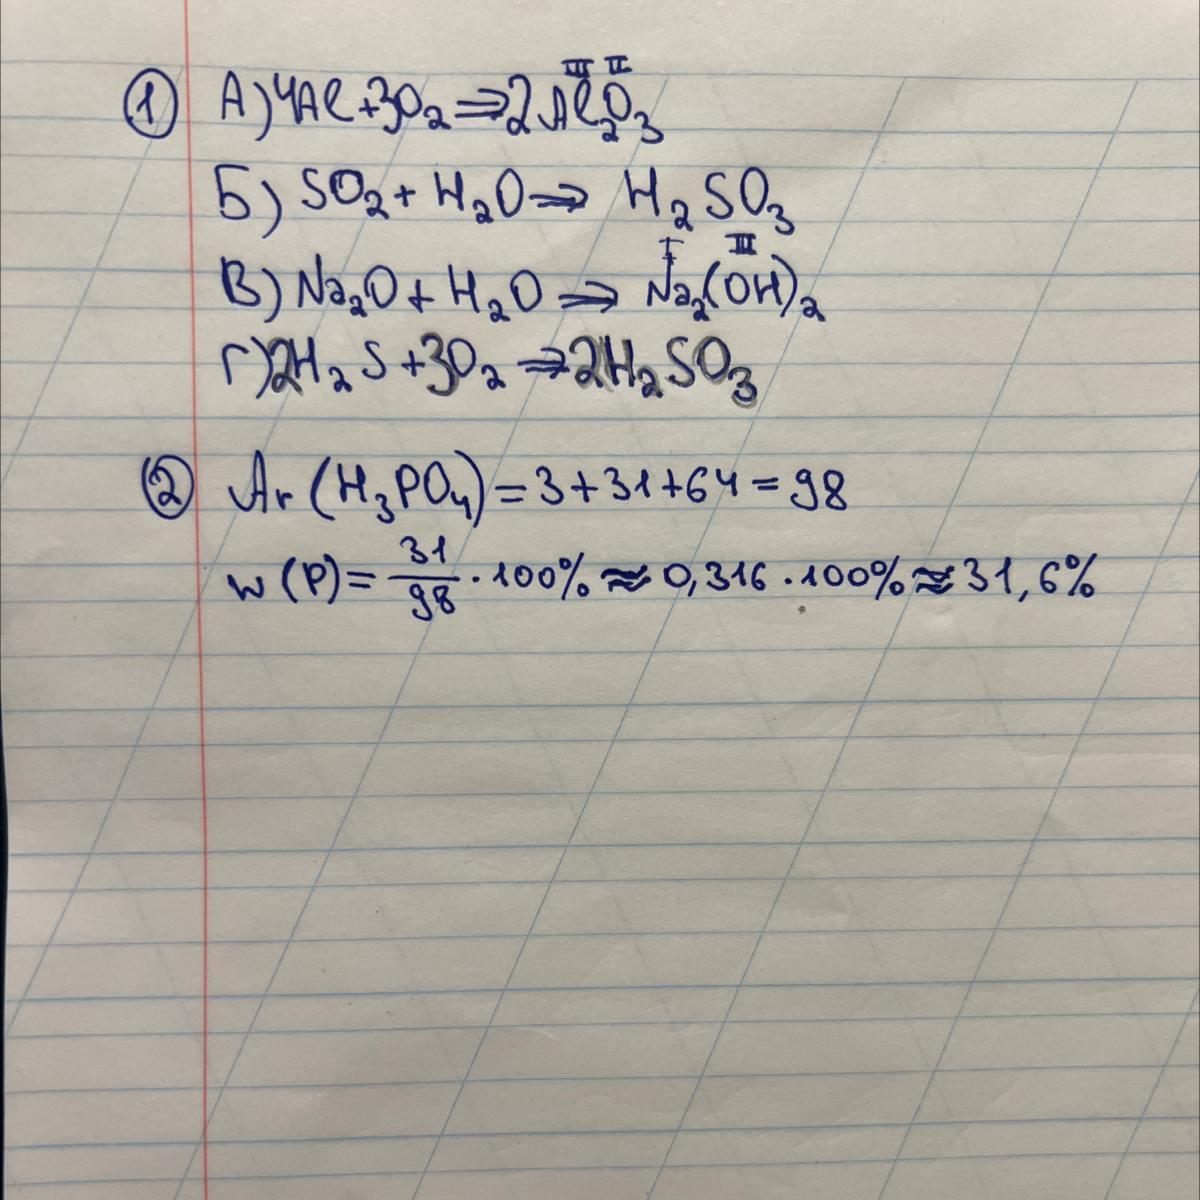 ① А) 4Al + 3O₂ ⇒ 2Al₂O₃ III II
Б) SO₂ + H₂O ⇒ H₂SO₃
В) Na₂O + H₂O ⇒ Na₂(OH)₂ I II
Г) 2H₂S + 3O₂ ⇒ 2H₂SO₃
② Ar (H₃PO₄) = 3 + 31 + 64 = 98
w (P) = 31/98 · 100% ≈ 0,316 · 100% ≈ 31,6%